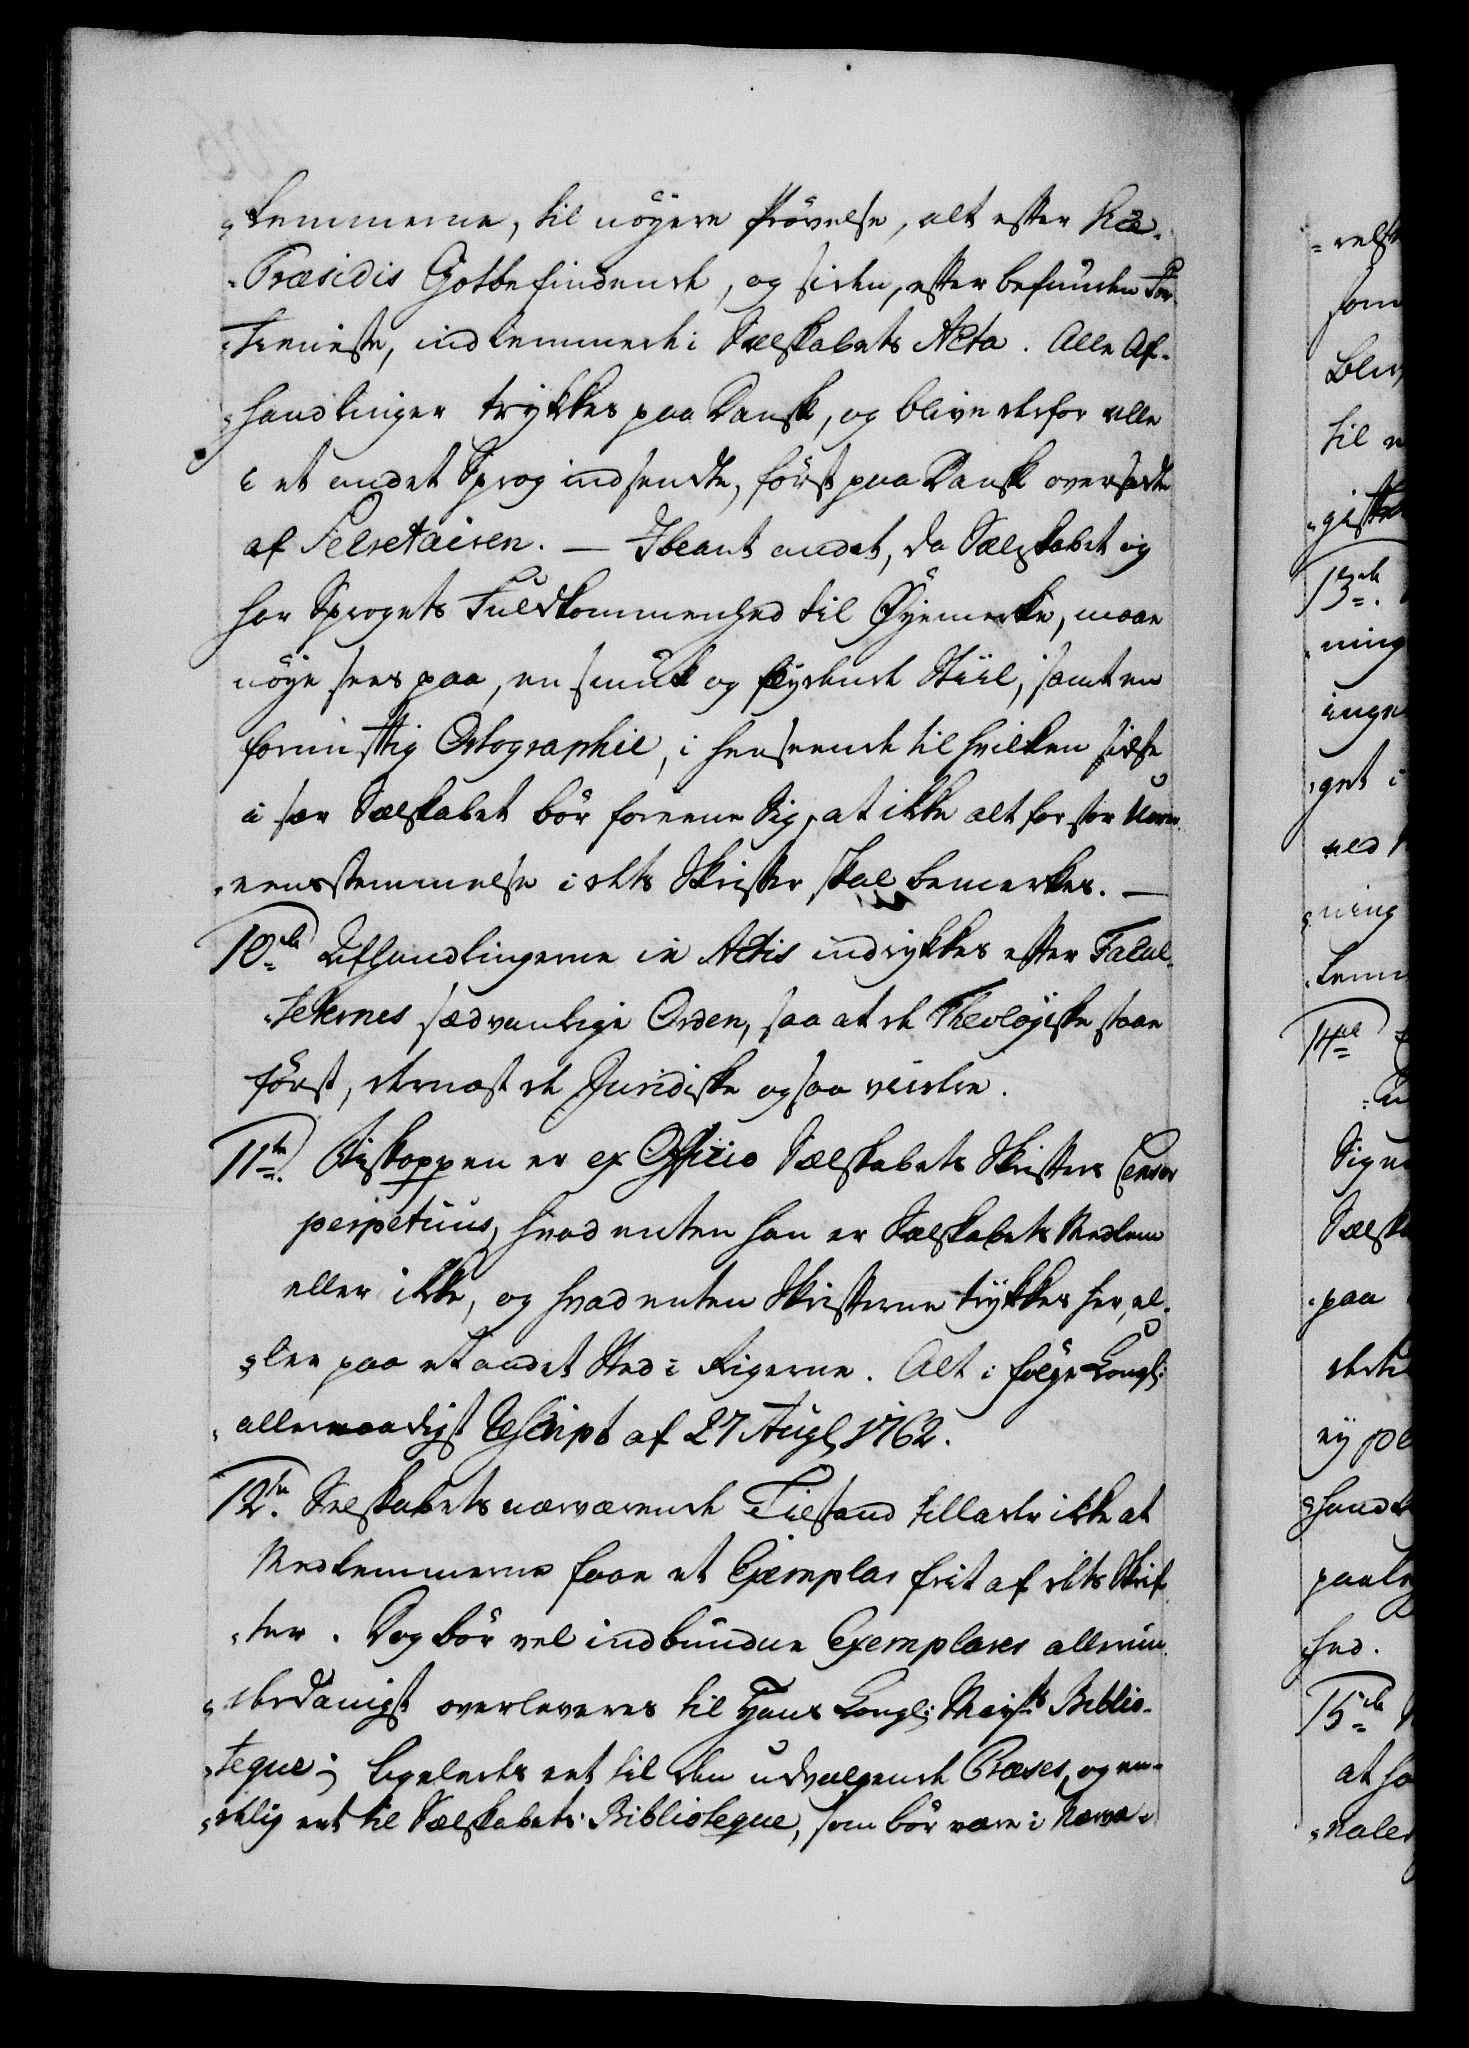 -lemmerne, til nöyere Prövelse, alt efter Vice-
-Præsidis Gotbefindende, og siden, efter befunden For-
-tieniste, indlemmede i Selskabets Acta. Alle Af-
-handlinger trykkes paa Dansk, og blive derfor alle
i et andet Sprog indsendte, först paa Dansk oversatte
af Secretairen. — Iblant andet, da Selskabet og
har Sprogets Fuldkommenhed til Øyemerke, maae
nöye sees paa, en smuk og flydende Stiil, samt en
fornuftig Ortographie, i henseende til hvilken sidste
i sær Selskabet bör foreene Sig, at ikke alt for stor Uover-
-eensstemmelse i dets Skrifter skal bemerkes. —
10de Afhandlingerne in Actis indrykkes efter Facul-
-teternes sædvanlige Orden, saa at de Theologiske staae
först, dernæst de Juridiske og saa viidre.
11te. Biskoppen er ex Officio Selskabets Skrifters Censor
perpetuus, hvad enten han er Selskabets Medlem
eller ikke, og hvad enten Skrifterne trykkes her, el-
-ler paa et andet Sted i Rigerne. Alt i fölge Kongl:
allernaadigst Rescript af 27 Aug. 1762.
12te. Selskabets nærværende Tilstand tillader ikke at
Medlemmerne faae et Exemplar frit af dets Skrif-
-ter. Dog bör vel indbundne Exemplarer allerun-
-derdanigst overleveres til Hans Kongl: Mayts Biblio-
-teque; ligeledes eet til den udvalgende Præses, og en-
-delig eet til Selskabets Biblioteque, som bör være i Nærvæ-
som
til
13de.
ning
get i
ning
14de
Signe
paa
hed.
15de
at